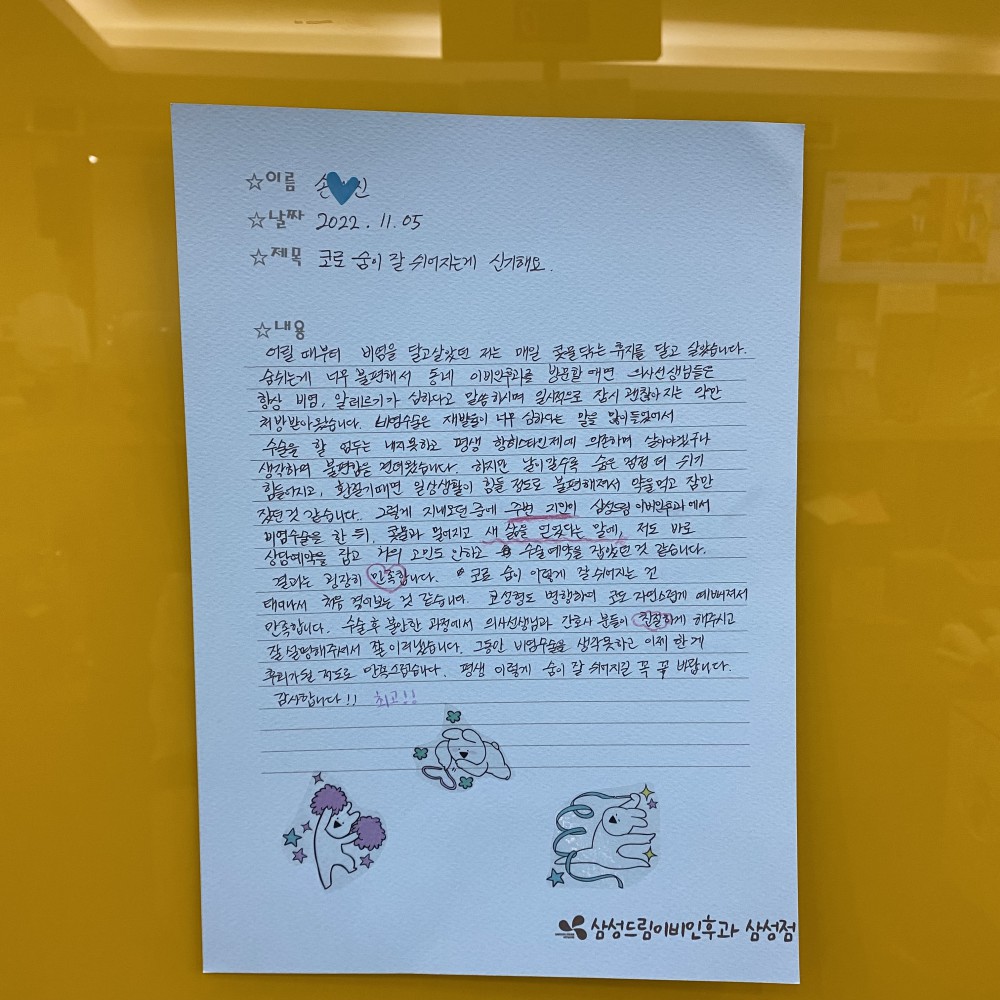 ☆이름 손 진
☆날짜 2022.11.05
☆제목 코로 숨이 잘 쉬어지는게 신기해요.
☆내용
어릴 때부터 비염을 달고살았던 저는 매일 콧물닦는 휴지를 달고 살았습니다.
숨쉬는게 너무 불편해서 동네 이비인후과를 방문할 때면 의사선생님들은
항상 비염, 알레르기가 심하다고 말씀하시며 일시적으로 잠시 괜찮아지는 약만
처방받아왔습니다. 비염수술은 재발률이 너무 심하다는 말을 많이들었어서
수술을 할 엄두는 내지못하고 평생 항히스타민제에 의존하며 살아야겠구나
생각하며 불편함을 견뎌왔습니다. 하지만 날이갈수록 숨은 점점 더 쉬기
힘들어지고, 환절기때면 일상생활이 힘들 정도로 불편해져서 약을먹고 잠만
잤던것 같습니다. 그렇게 지내오던 중에 주변 지인이 삼성드림 이비인후과에서
비염수술을 한 뒤, 콧물과 멀어지고 새 삶을 얻었다는 말에, 저도 바로
상담예약을 잡고 거의 고민도 안하고 수술예약을 잡았던것 같습니다.
결과는 굉장히 만족합니다. 코로 숨이 이렇게 잘쉬어지는 건
태어나서 처음 겪어보는 것 같습니다. 코성형도 병행하여 코도 자연스럽게 예뻐져서
만족합니다. 수술후 불안한 과정에서 의사선생님과 간호사 분들이 친절하게 해주시고
잘 설명해주셔서 잘 이겨냈습니다. 그동안 비염수술을 생각못하고 이제 한게
후회가될 정도로 만족스럽습니다. 평생 이렇게 숨이 잘 쉬어지길 꼭 꼭 바랍니다.
감사합니다!! 최고!!
삼성드림이비인후과 삼성점